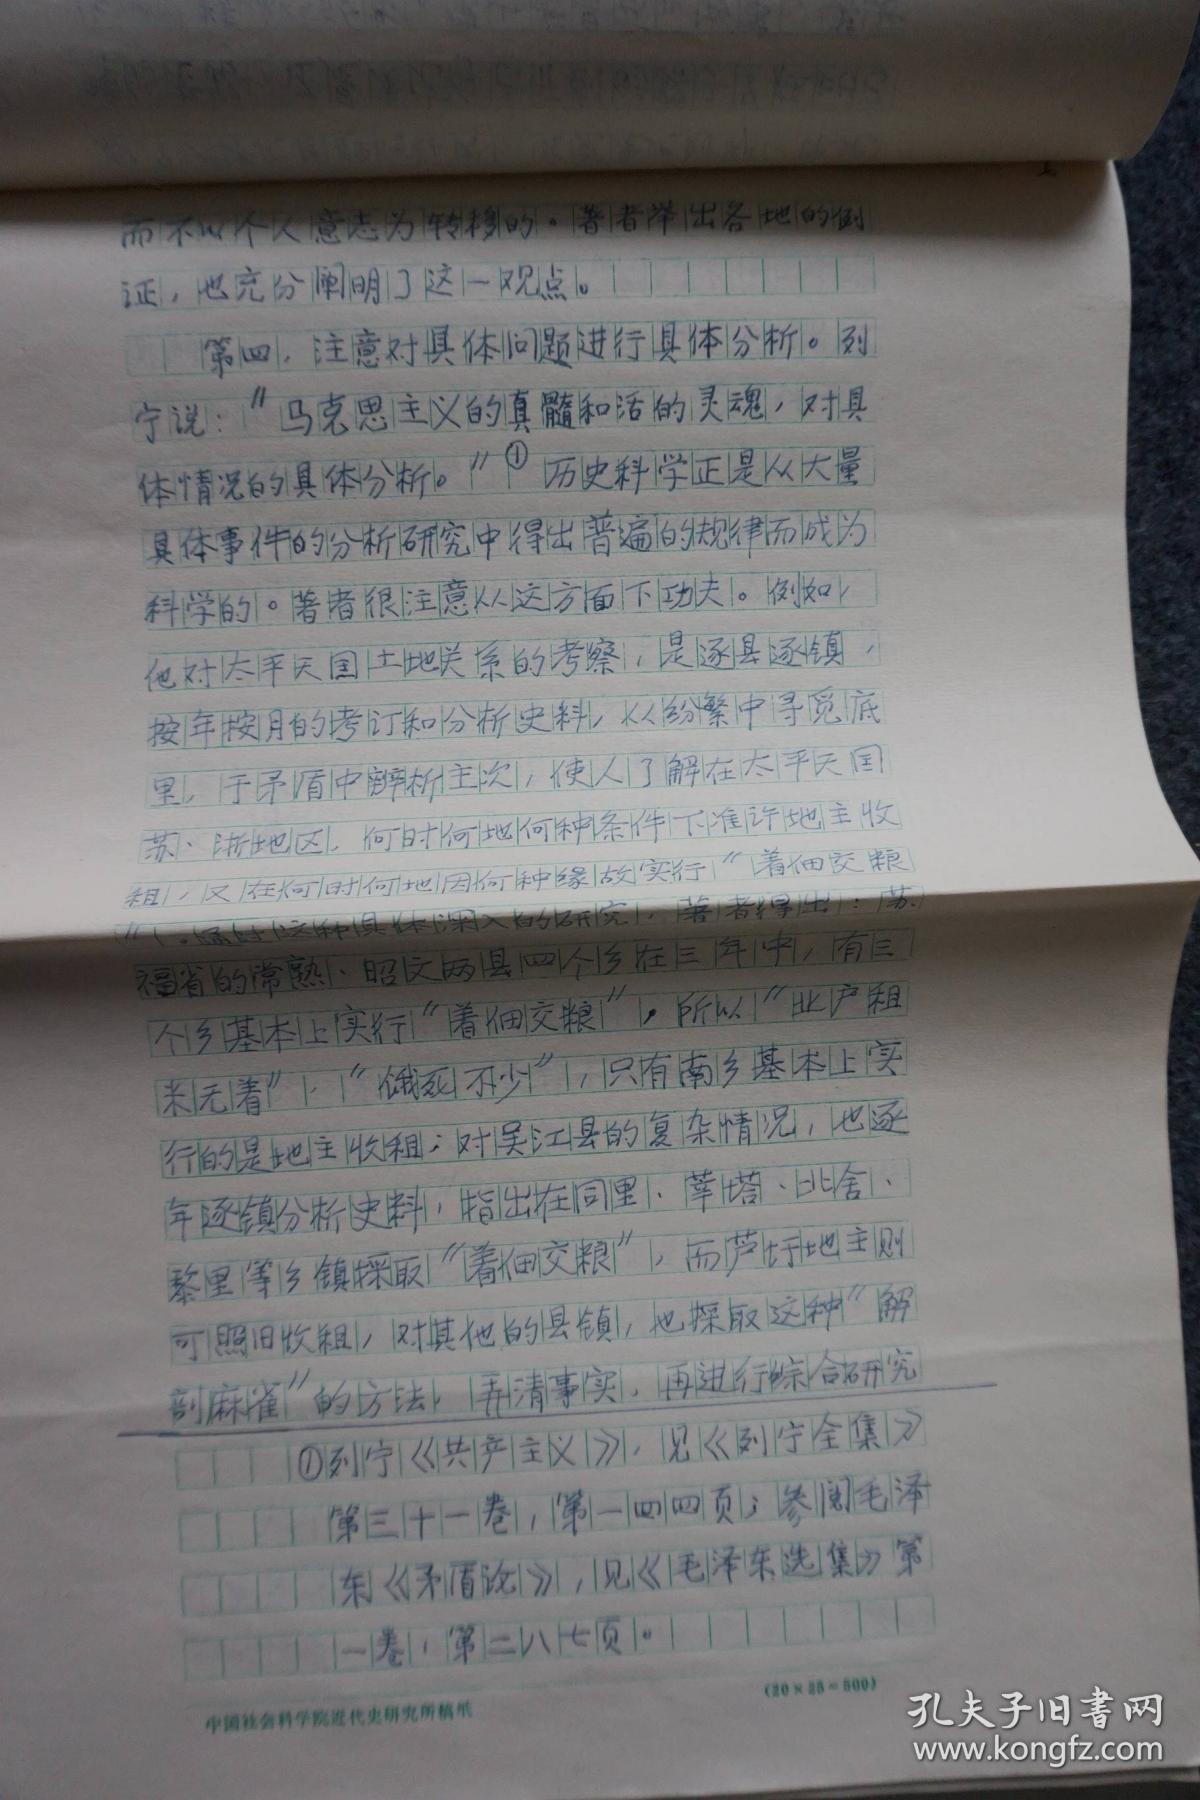 而不以个人意志为转移的。著者举出各地的例
证，也充分阐明了这一观点。
第四，注意对具体问题进行具体分析。列
宁说：“马克思主义的真髓和活的灵魂，对具
体情况的具体分析。”①历史科学正是从大量
具体事件的分析研究中得出普遍的规律而成为
科学的。著者很注意从这方面下功夫。例如，
他对太平天国土地关系的考察，是逐县逐镇，
按年按月的考订和分析史料，从纷繁中寻觅底
里，于矛盾中辨析主次，使人了解在太平天国
苏、浙地区，何时何地何种条件下准许地主收
租，又在何时何地因何种缘故实行“着佃交粮
”。通过这种具体深入的研究，著者得出：苏
福省的常熟、昭文两县四个乡在三年中，有三
个乡基本上实行“着佃交粮”，所以“业户租
米无着”，“饿死不少”，只有南乡基本上实
行的是地主收租；对吴江县的复杂情况，也逐
年逐镇分析史料，指出在同里、莘塔、北舍、
黎里等乡镇採取“着佃交粮”，而芦圩地主则
可照旧收租，对其他的县镇，也採取这种“解
剖麻雀”的方法，弄清事实，再进行综合研究
①列宁《共产主义》，见《列宁全集》
第三十一卷，第一四四页；参阅毛泽
东《矛盾论》，见《毛泽东选集》第
一卷，第二八七页。
(20×25=500)
中国社会科学院近代史研究所稿纸
孔夫子旧书网
www.kongfz.com